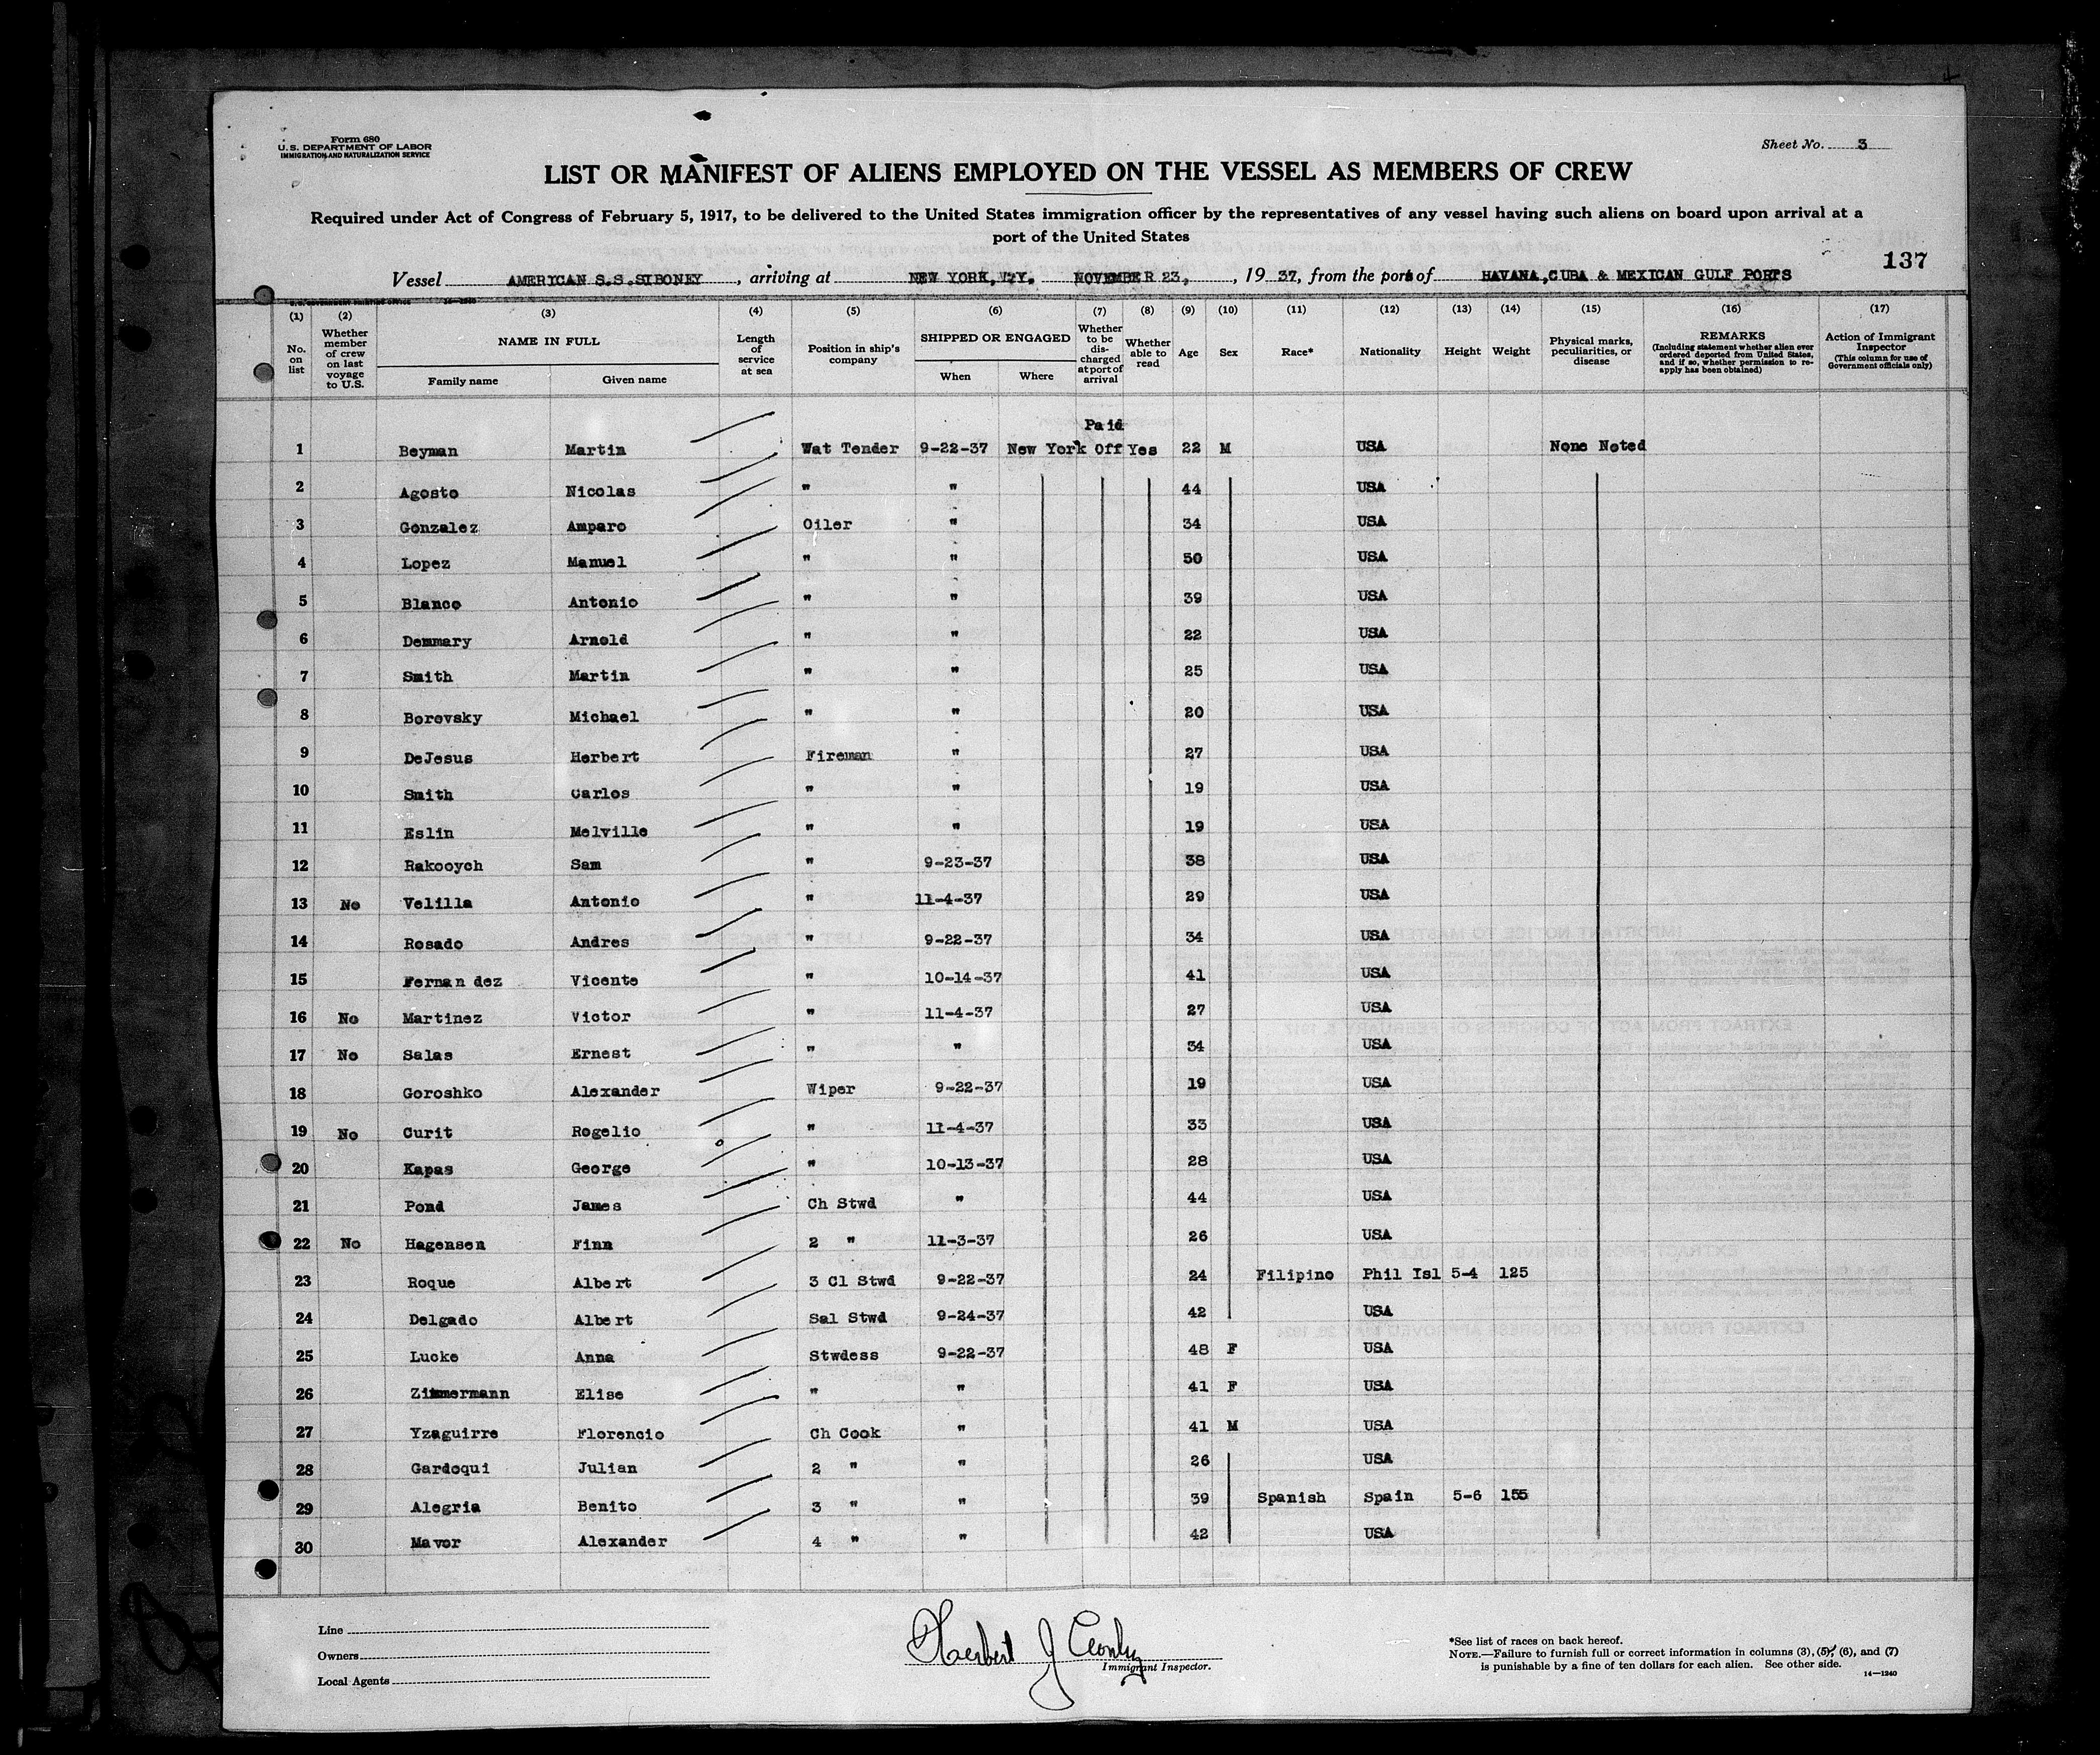 Form 680
U.S. DEPARTMENT OF LABOR
IMMIGRATION AND NATURALIZATION SERVICE
Sheet No. 3
LIST OR MANIFEST OF ALIENS EMPLOYED ON THE VESSEL AS MEMBERS OF CREW
Required under Act of Congress of February 5, 1917, to be delivered to the United States immigration officer by the representatives of any vessel having such aliens on board upon arrival at a
port of the United States
137
Vessel AMERICAN S.S.SIBONEY, arriving at NEW YORK, N.Y. NOVEMBER 23, 1937, from the ports of HAVANA,CUBA & MEXICAN GULF PORTS
(1) (2) (3) (4) (5) (6) (7) (8) (9) (10) (11) (12) (13) (14) (15) (16) (17)
No. on list
Whether member of crew on last voyage to U.S.
NAME IN FULL
Family name Given name
Length of service at sea
Position in ship's company
SHIPPED OR ENGAGED
When Where
Whether to be discharged at port of arrival
Whether able to read
Age
Sex
Race*
Nationality
Height
Weight
Physical marks, peculiarities, or disease
REMARKS
(Including statement whether alien ever ordered deported from United States, and if so, whether permission to reapply has been obtained)
Action of Immigrant Inspector
(This column for use of Government officials only)
Paid
1 Beyman Martin Wat Tender 9-22-37 New York Off Yes 22 M USA None Noted
2 Agosto Nicolas " " 44 USA
3 Gonzalez Amparo Oiler " 34 USA
4 Lopez Manuel " " 50 USA
5 Blanco Antonio " " 39 USA
6 Demmary Arnold " " 22 USA
7 Smith Martin " " 25 USA
8 Borovsky Michael " " 20 USA
9 DeJesus Herbert Fireman " 27 USA
10 Smith Carlos " " 19 USA
11 Eslin Melville " " 19 USA
12 Rakooych Sam " 9-23-37 38 USA
13 No Velilla Antonio " 11-4-37 29 USA
14 Rosado Andres " 9-22-37 34 USA
15 Fernan dez Vicente " 10-14-37 41 USA
16 No Martinez Victor " 11-4-37 27 USA
17 No Salas Ernest " " 34 USA
18 Goroshko Alexander Wiper 9-22-37 19 USA
19 No Curit Rogelio " 11-4-37 33 USA
20 Kapas George " 10-13-37 28 USA
21 Pond James Ch Stwd " 44 USA
22 No Hagensen Finn 2 " 11-3-37 26 USA
23 Roque Albert 3 Cl Stwd 9-22-37 24 Filipino Phil Isl 5-4 125
24 Delgado Albert Sal Stwd 9-24-37 42 USA
25 Lucke Anna Stwdess 9-22-37 48 F USA
26 Zimmermann Elise " " 41 F USA
27 Yzaguirre Florencio Ch Cook " 41 M USA
28 Gardoqui Julian 2 " " 26 USA
29 Alegria Benito 3 " " 39 Spanish Spain 5-6 155
30 Mavor Alexander 4 " " 42 USA
Line
Owners
Local Agents
Herbert J
Immigrant Inspector.
*See list of races on back hereof.
NOTE.—Failure to furnish full or correct information in columns (3), (5), (6), and (7)
is punishable by a fine of ten dollars for each alien. See other side.
14—1240